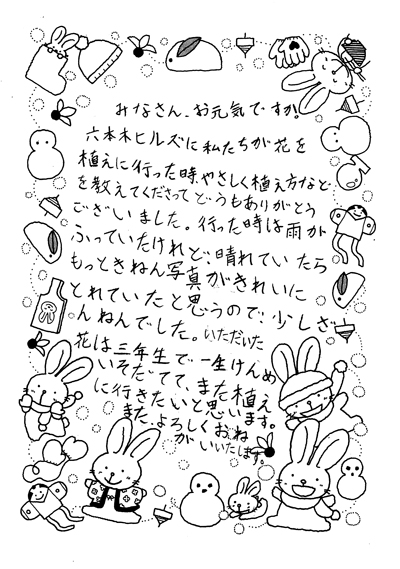 みなさん、お元気ですか!
六本木ヒルズに私たちが花を
植えに行った時、やさしく植え方など
を教えてくださってどうもありがとう
ございました。行った時は雨が
ふっていたけれど、晴れていたら
もっときねん写真がきれいに
とれていたと思うので、少しざ
んねんでした。いただいた
花は三年生で一生けんめ
いそだてて、また植え
に行きたいと思います。
また、よろしくおね
がいいたします。